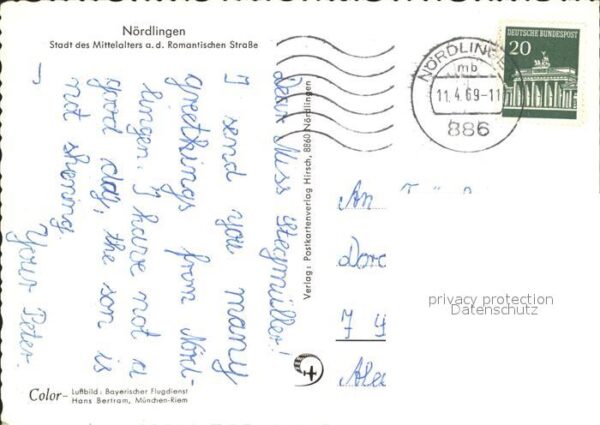 Nördlingen
Stadt des Mittelalters a. d. Romantischen Straße
Dear Miss Stegmüller!
I send you many
greetings from Nörd-
lingen. I have not a
good day, the son is
not shening.
Your Peter.
Verlag: Postkartenverlag Hirsch, 8860 Nördlingen
NÖRDLINGEN
mb
11.4.69-11
886
DEUTSCHE BUNDESPOST
20
An
privacy protection
Datenschutz
Color- Luftbild: Bayerischer Flugdienst
Hans Bertram, München-Riem